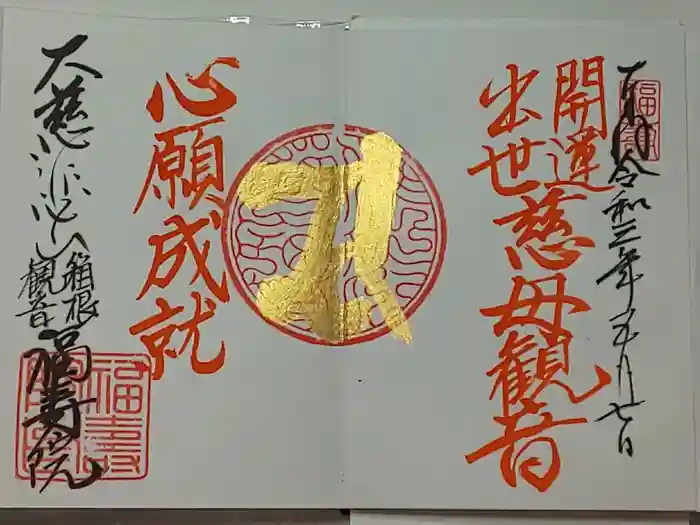 奉拝 令和三年五月七日
開運
出世慈母観音
心願成就
大慈悲山
箱根
観音
福寿院
福寿